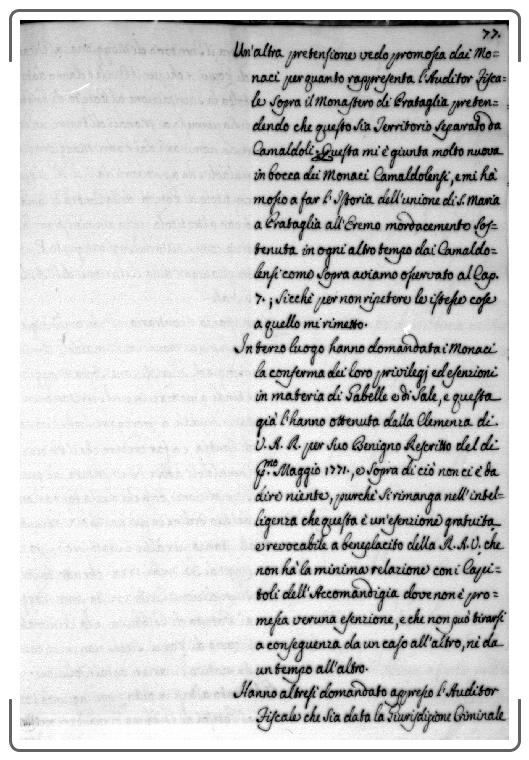 77.
Un'altra pretensione vedo promossa dai Mo=
naci per quanto rappresenta l'Auditor Fisca=
le sopra il Monastero di Prataglia preten=
dendo che questo sia Territorio separato da
Camaldoli. Questa mi è giunta molto nuova
in bocca dei Monaci Camaldolensi, e mi ha
mosso a far l'Istoria dell'unione di S. Maria
a Prataglia all'Eremo mordacemente sos=
tenuta in ogni altro tempo dai Camaldo=
lensi come sopra aviamo osservato al Cap.
7.; Sicchè per non ripetere le istesse cose
a quello mi rimetto.
In terzo luogo hanno domandata i Monaci
la conferma dei loro privilegj ed esenzioni
in materia di Gabelle e di Sale, e questa
già l'hanno ottenuta dalla Clemenza di
V. A. R. per suo Benigno Rescritto del di
P.mo Maggio 1771., e sopra di ciò non ci è da
dire niente, purchè si rimanga nell'intel=
ligenza che questa è un'esenzione gratuita
e revocabile a beneplacito della R. A. V. che
non ha la minima relazione con i Capi=
toli dell'Accomandigia dove non è pro=
messa veruna esenzione, e che non può tirarsi
a conseguenza da un caso all'altro, nè da
un tempo all'altro.
Hanno altresì domandato appresso l'Auditor
Fiscale che sia data la Giurisdizione Criminale